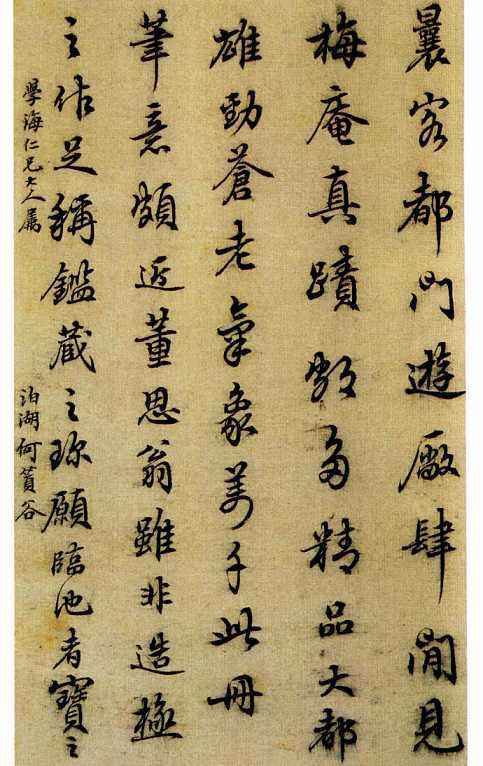 曩客都門遊廠肆間見
梅庵真蹟數多精品大都
雄勁蒼老氣象萬千此冊
筆意頗近董思翁雖非造極
之作足稱鑑藏之珍願臨池者寶之
學海仁兄大人屬
泊湖何蕢谷